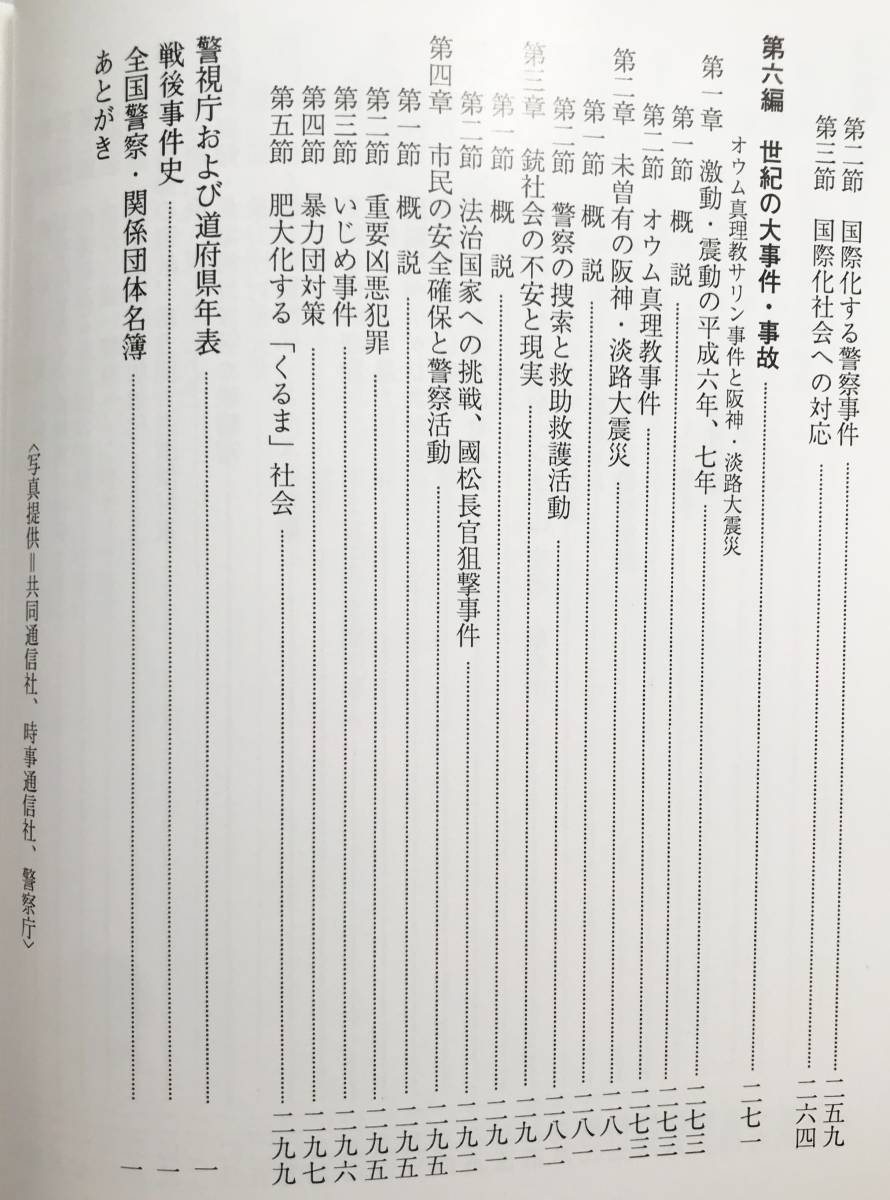 第二節 国際化する警察事件……二五九
第三節 国際化社会への対応……二六四
第六編 世紀の大事件・事故……二七一
オウム真理教サリン事件と阪神・淡路大震災
第一章 激動・震動の平成六年、七年……二七三
第一節 概説……二七三
第二節 オウム真理教事件……二七三
第二章 未曽有の阪神・淡路大震災……二八一
第一節 概説……二八一
第二節 警察の捜索と救助救護活動……二八二
第三章 銃社会の不安と現実……二九一
第一節 概説……二九一
第二節 法治国家への挑戦、國松長官狙撃事件……二九二
第四章 市民の安全確保と警察活動……二九五
第一節 概説……二九五
第二節 重要凶悪犯罪……二九五
第三節 いじめ事件……二九六
第四節 暴力団対策……二九七
第五節 肥大化する「くるま」社会……二九九
警視庁および道府県年表……一
戦後事件史……一
全国警察・関係団体名簿……一
あとがき
〈写真提供＝共同通信社、時事通信社、警察庁〉